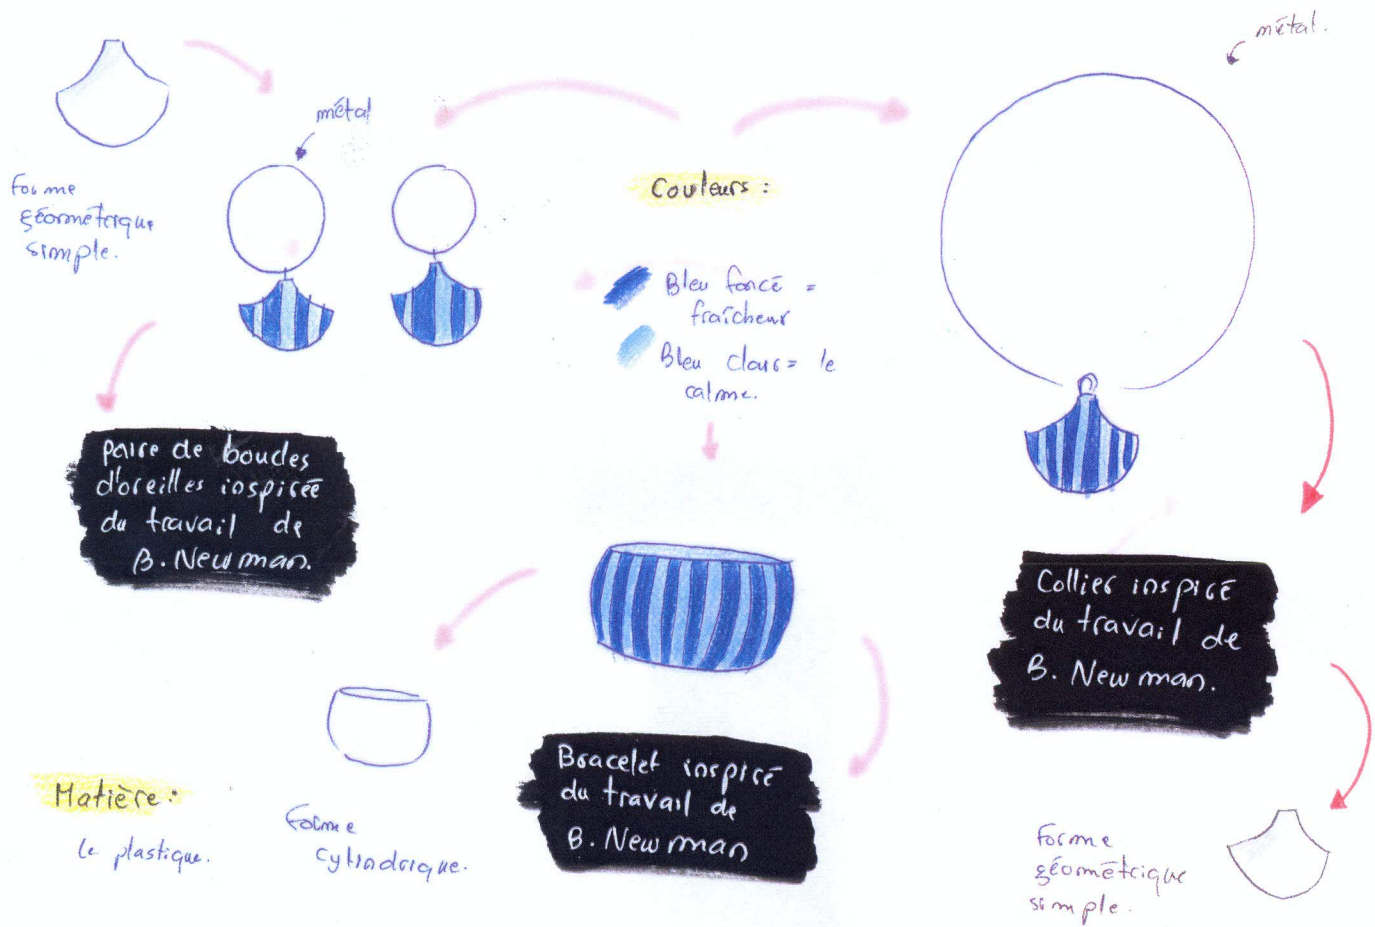 métal.
métal
Forme
géométrique
simple.
Couleurs :
Bleu foncé =
fraîcheur
Bleu clair = le
calme.
paire de boucles
d'oreilles inspirée
du travail de
B. Newman.
Collier inspiré
du travail de
B. Newman.
Bracelet inspiré
du travail de
B. Newman
Matière :
le plastique.
forme
cylindrique.
Forme
géométrique
simple.